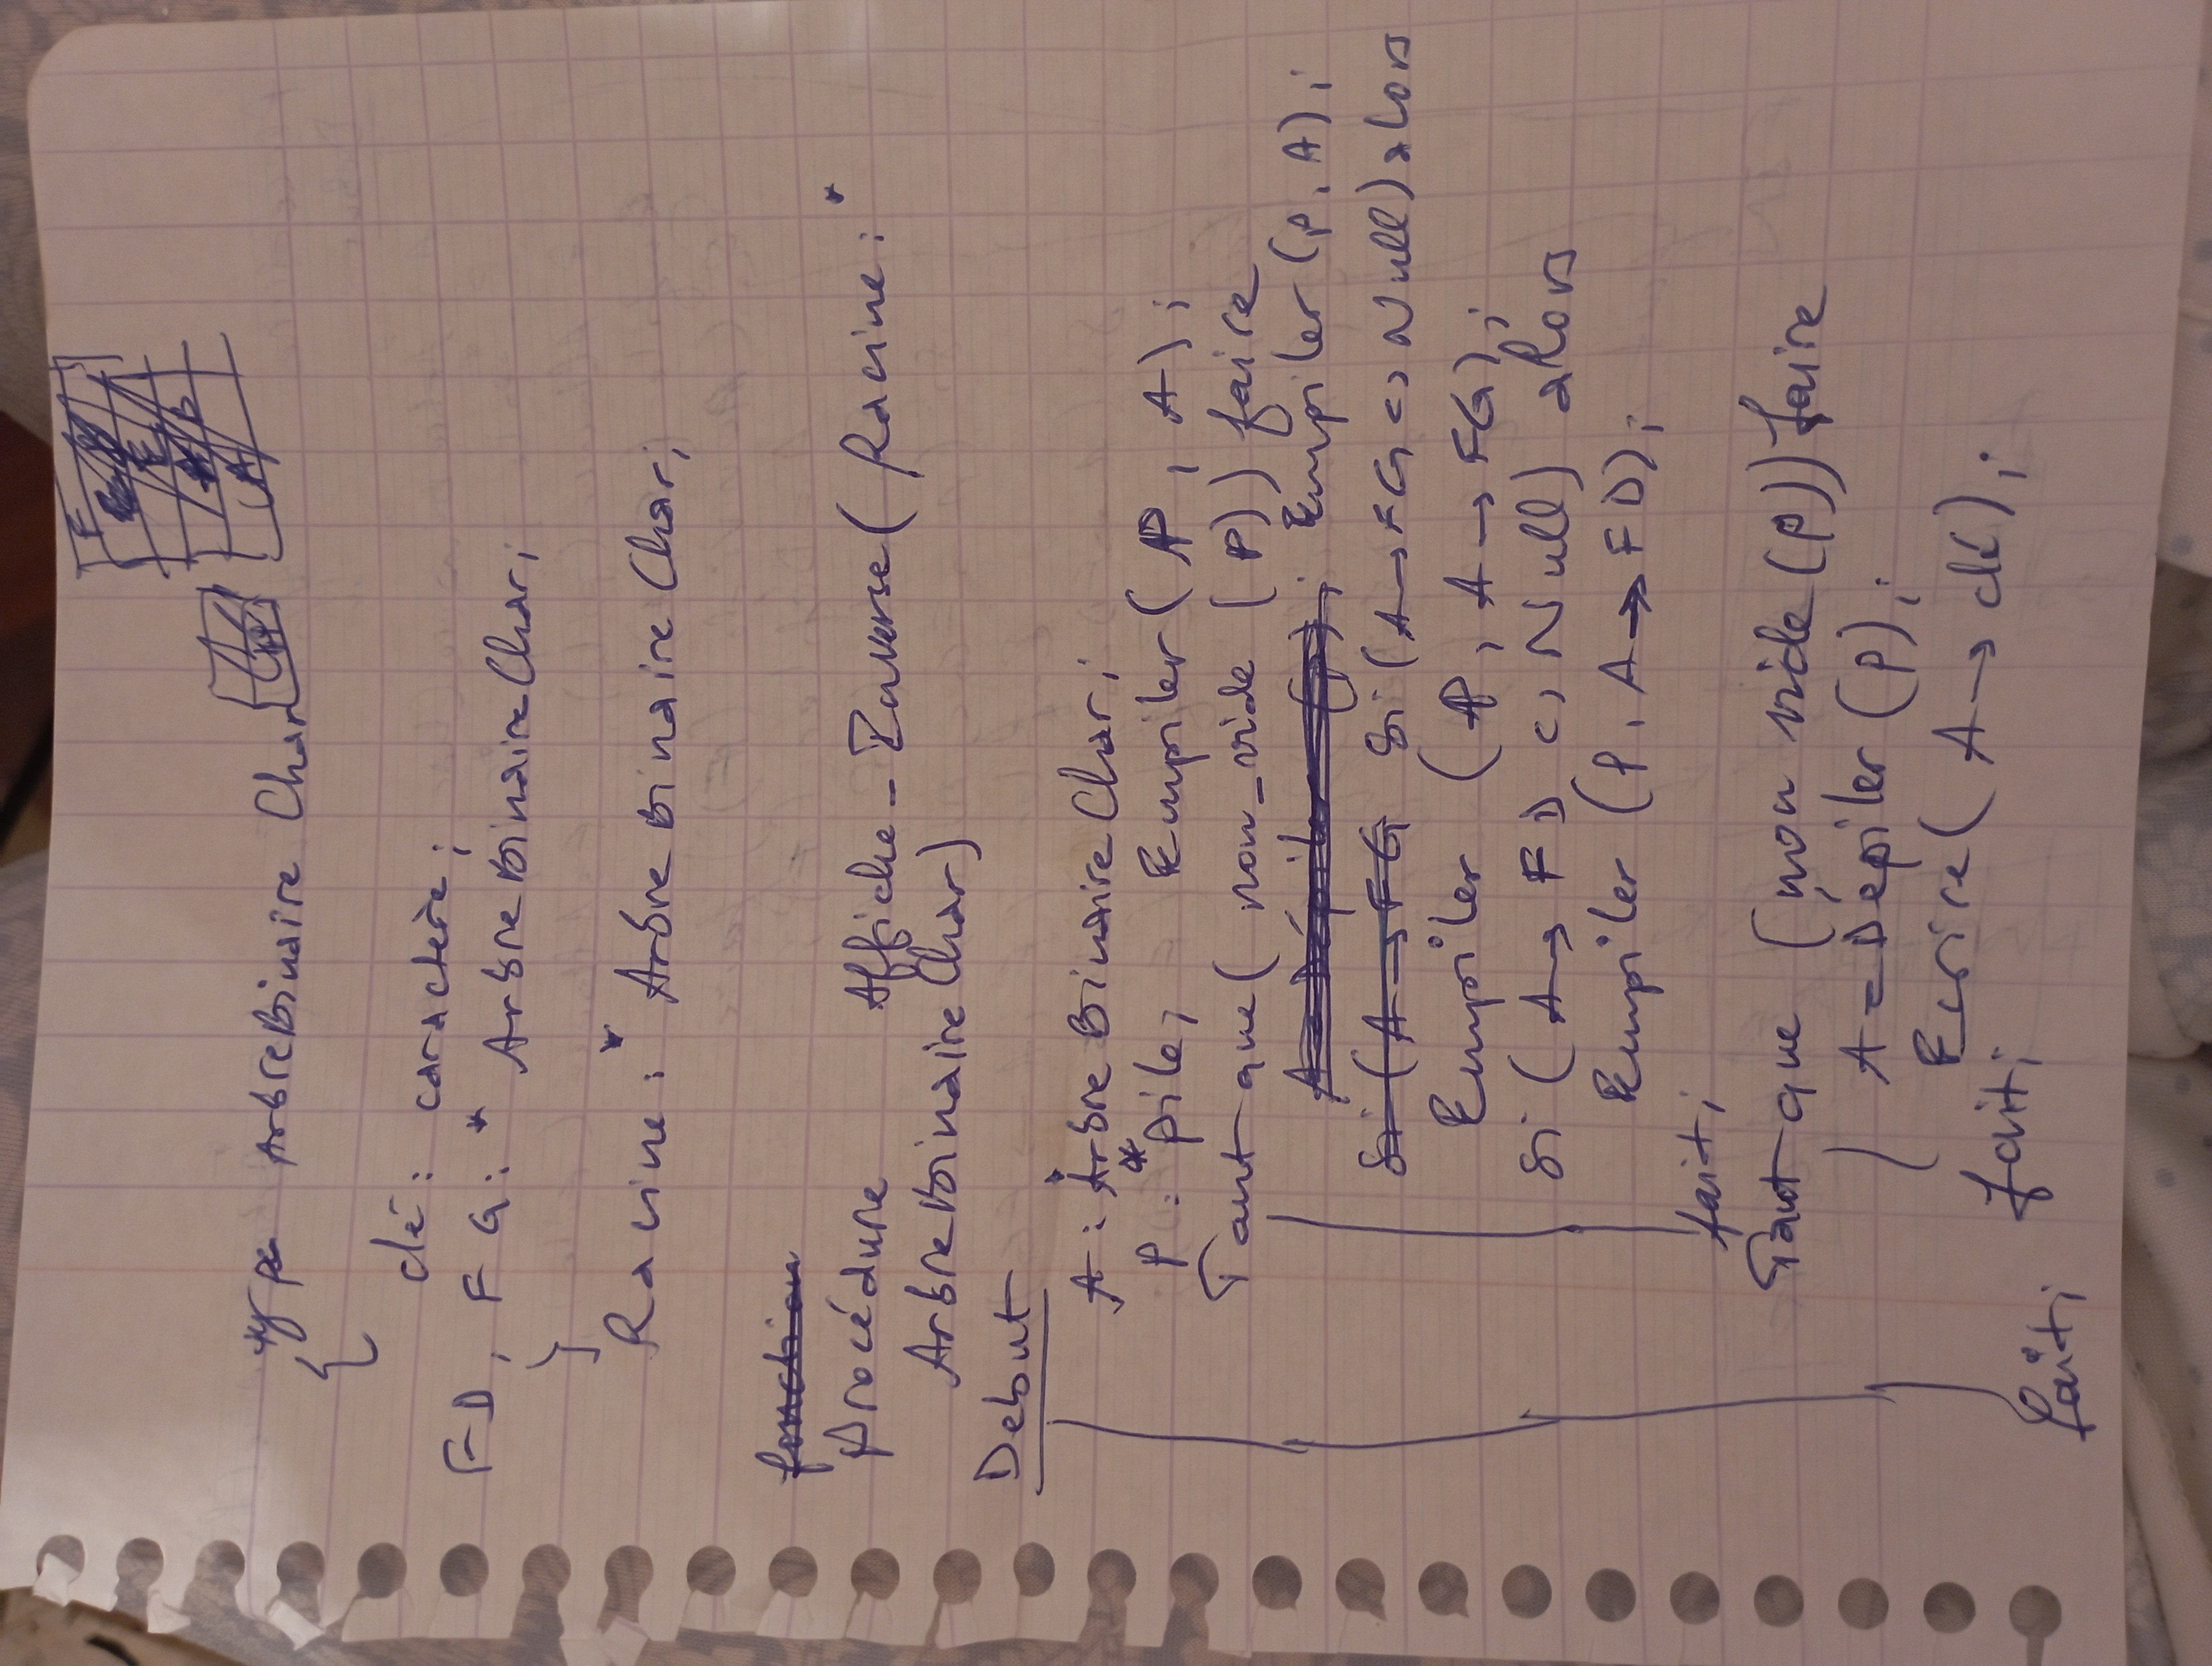 type ArbreBinaire Char
{
clé : caractère ;
FD, FG : * ArbreBinaireChar ;
}
Racine : * ArbreBinaireChar ;
fonction
procédure Affiche_Inverse ( Racine : *
ArbreBinaireChar )
Debut
A : * ArbreBinaireChar ;
P : * pile ; Empiler ( P , A ) ;
Tant que ( non_vide ( P ) ) faire
A = Dépiler ( P ) ; Empiler ( P , A ) ;
Si ( A → FG Si ( A → FG <> Null ) alors
Empiler ( P , A → FG ) ;
Si ( A → FD <> Null ) alors
Empiler ( P , A → FD ) ;
fait ;
Tant que ( non vide ( P ) ) faire
A = Depiler ( P ) ;
Ecrire ( A → clé ) ;
fait ;
fait ;